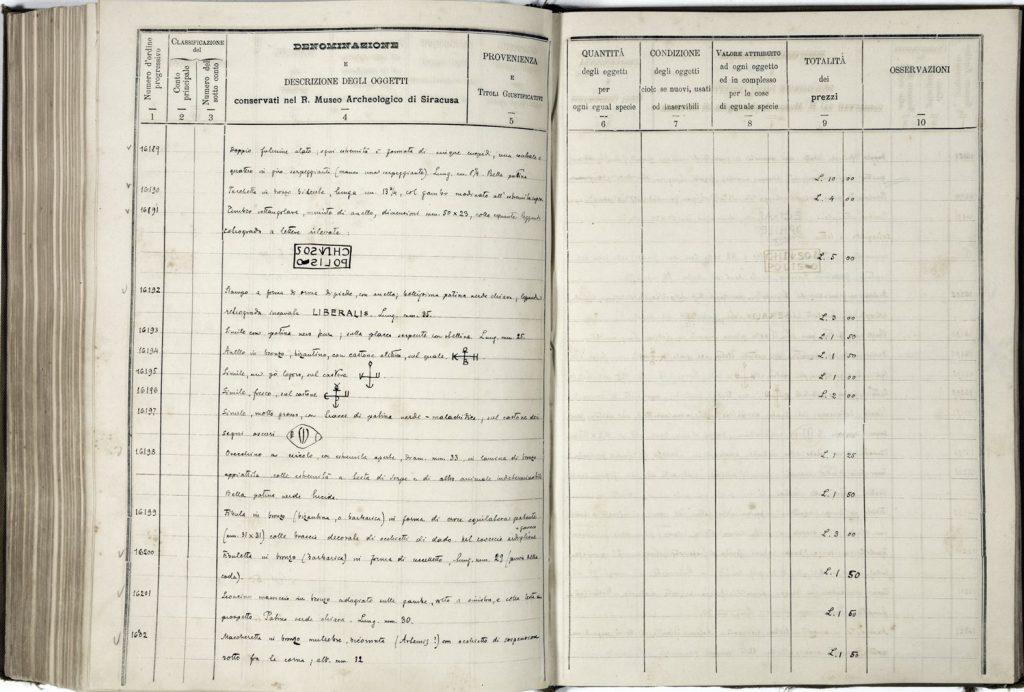 Numero d'ordine progressivo
1
CLASSIFICAZIONE
del
Conto principale
2
Numero del sotto conto
3
DENOMINAZIONE
E
DESCRIZIONE DEGLI OGGETTI
conservati nel R. Museo Archeologico di Siracusa
4
PROVENIENZA
E
TITOLI GIUSTIFICATIVI
5
16189 Doppio fulmine alato, ogni estremità è formata di cinque cuspidi, una centrale e
quattro in giro serpeggianti (manca una serpeggiante). Lung. cm. Bella patina
16190 in bronzo lunga cm. 13 col gambo modinato all'estremità
16191 Timbro rettangolare, munito di anello, dimensioni mm. 50 x 23, colla seguente leggenda
retrograda a lettere rilevate:
CHRYSOS
POLIS
16192 Stampo a forma di orma di piede, con anello; bellissima patina verde chiara, leggenda
retrograda incavata LIBERALIS. Lung. mm. 35.
16193 Simile con patina nero pura; sulla placca serpente Lung. mm. 25.
16194 Anello in bronzo, bizantino, con castone sul quale
16195 Simile, lavoro, sul castone
16196 Simile, fresco, sul castone
16197 Simile, molto grosso, con tracce di patina verde-malachitica, sul castone dei
segni oscuri
16198 Orecchino a circolo, con estremità aperte, diam. mm. 33, in lamina di bronzo
appiattita colle estremità a testa di serpe e di altro animale indeterminabile
Bella patina verde lucida.
16199 Fibula in bronzo (bizantina, o barbarica) in forma di croce equilatera patente
(mm. 31 x 31) colle braccia decorate di occhietti di dado. Nel rovescio
16200 Fibuletta in bronzo (barbarica) in forma di uccelletto, lung. mm. 29 (priva della
coda).
16201 Leoncino massiccio in bronzo adagiato sulle gambe, volto a sinistra, e colla testa di
prospetto. Patina verde chiara. Lung. mm. 30.
1632 Mascheretta in bronzo muliebre, bicornuta (Artemis?) con occhietto di sospensione
rotto fra le corna; alt. mm 12
QUANTITÀ
degli oggetti
per
ogni egual specie
6
CONDIZIONE
degli oggetti
cioè: se nuovi, usati
od inservibili
7
VALORE ATTRIBUITO
ad ogni oggetto
ed in complesso
per le cose
di eguale specie
8
TOTALITÀ
dei
prezzi
9
OSSERVAZIONI
10
L. 10 00
L. 4 00
L. 5 00
L. 3 00
L. 1 50
L. 1 50
L. 1 00
L. 2 00
L. 1 25
L. 1 50
L. 3 00
L. 1 50
L. 1 50
L. 1 50